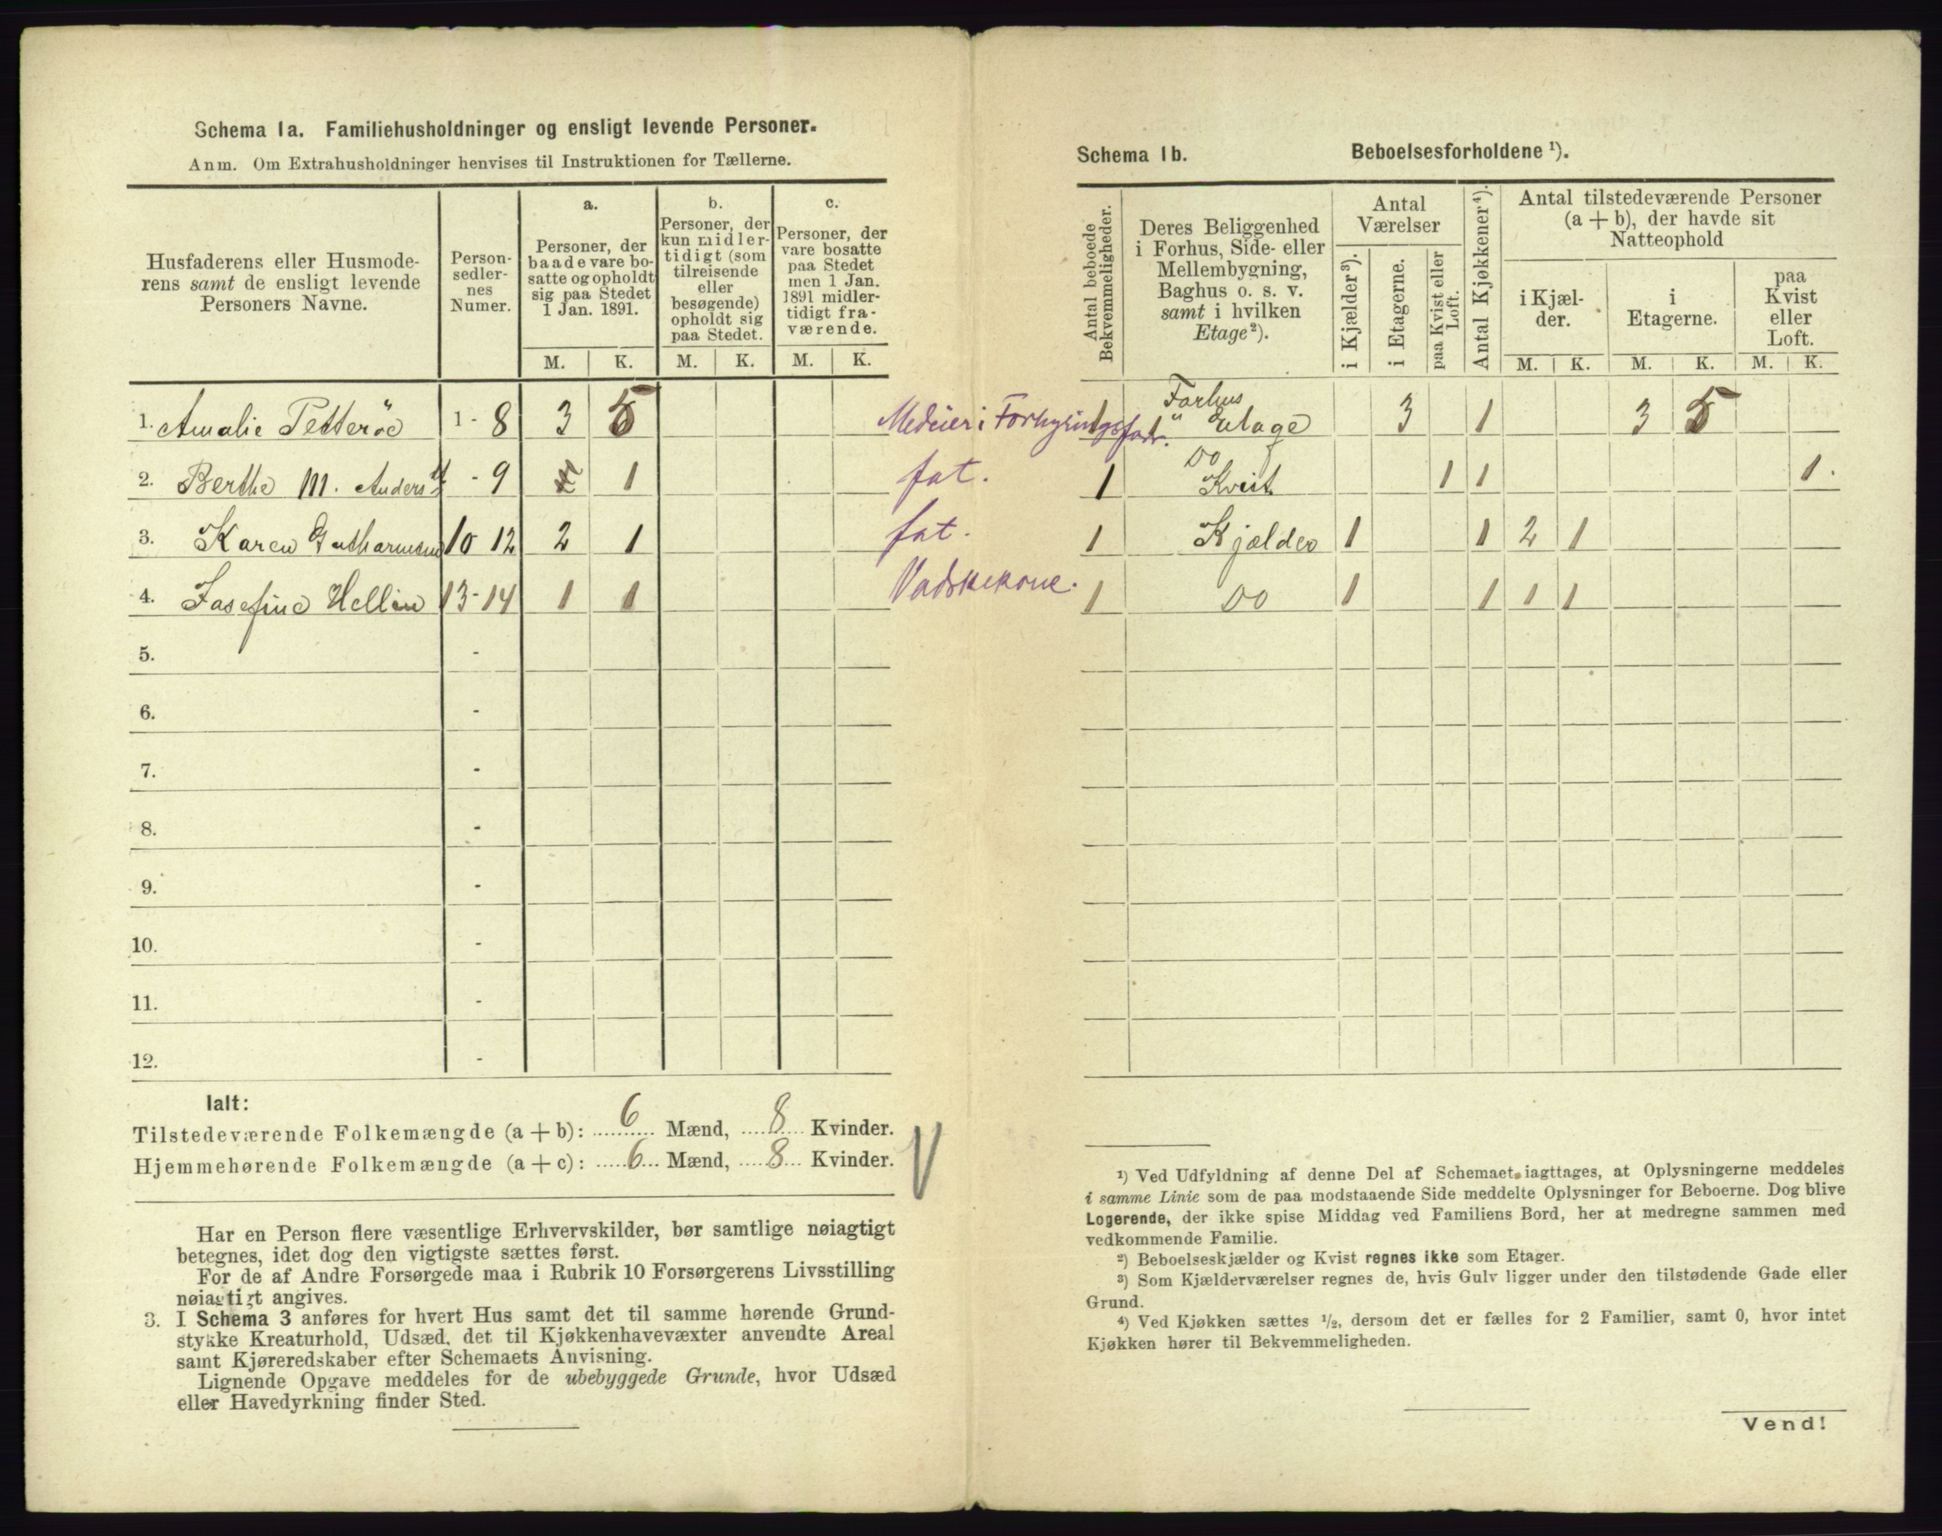 Schema 1a. Familiehusholdninger og ensligt levende Personer.
Anm. Om Extrahusholdninger henvises til Instruktionen for Tællerne.
Husfaderens eller Husmode-
rens samt de ensligt levende
Personers Navne.
Person-
sedler-
nes
Numer.
a.
Personer, der
baade vare bo-
satte og opholdt
sig paa Stedet
1 Jan. 1891.
b.
Personer, der
kun midler-
tidigt (som
tilreisende
eller
besøgende)
opholdt sig
paa Stedet.
c.
Personer, der
vare bosatte
paa Stedet
men 1 Jan.
1891 midler-
tidigt fra-
værende.
M. K. M. K. M. K.
1. Amalie Petterøe 1 - 8 3 5 Meduer i Forhyringsfadr.
2. Berthe M. Anders - 9 1 fat.
3. Karen Guthormsen 10 12 2 1 fat.
4. Josefine Hellin 13 - 14 1 1 Vadskekone.
5. -
6. -
7. -
8. -
9. -
10. -
11. -
12. -
Ialt:
Tilstedeværende Folkemængde (a + b): 6 Mænd, 8 Kvinder.
Hjemmehørende Folkemængde (a + c): 6 Mænd, 8 Kvinder.
Har en Person flere væsentlige Erhvervskilder, bør samtlige nøiagtigt
betegnes, idet dog den vigtigste sættes først.
For de af Andre Forsørgede maa i Rubrik 10 Forsørgerens Livsstilling
nøiagtigt angives.
3. I Schema 3 anføres for hvert Hus samt det til samme hørende Grund-
stykke Kreaturhold, Udsæd, det til Kjøkkenhavevæxter anvendte Areal
samt Kjøreredskaber efter Schemaets Anvisning.
Lignende Opgave meddeles for de ubebyggede Grunde, hvor Udsæd
eller Havedyrkning finder Sted.
Schema 1b. Beboelsesforholdene ¹).
Antal beboede
Bekvemmeligheder.
Deres Beliggenhed
i Forhus, Side- eller
Mellembygning,
Baghus o. s. v.
samt i hvilken
Etage²).
Antal
Værelser
i Kjælder³).
i Etagerne.
paa Kvist eller
Loft.
Antal Kjøkkener⁴).
Antal tilstedeværende Personer
(a + b), der havde sit
Natteophold
i Kjæl-
der.
i
Etagerne.
paa
Kvist
eller
Loft.
M. K. M. K. M. K.
1 Forhus
" Etage 3 1 3 5
1 Do
Kvist 1 1 1.
1 Kjælder 1 1 2 1
1 Do 1 1 1 1
¹) Ved Udfyldning af denne Del af Schemaet iagttages, at Oplysningerne meddeles
i samme Linie som de paa modstaaende Side meddelte Oplysninger for Beboerne. Dog blive
Logerende, der ikke spise Middag ved Familiens Bord, her at medregne sammen med
vedkommende Familie.
²) Beboelseskjælder og Kvist regnes ikke som Etager.
³) Som Kjælderværelser regnes de, hvis Gulv ligger under den tilstødende Gade eller
Grund.
⁴) Ved Kjøkken sættes ½, dersom det er fælles for 2 Familier, samt 0, hvor intet
Kjøkken hører til Bekvemmeligheden.
Vend!